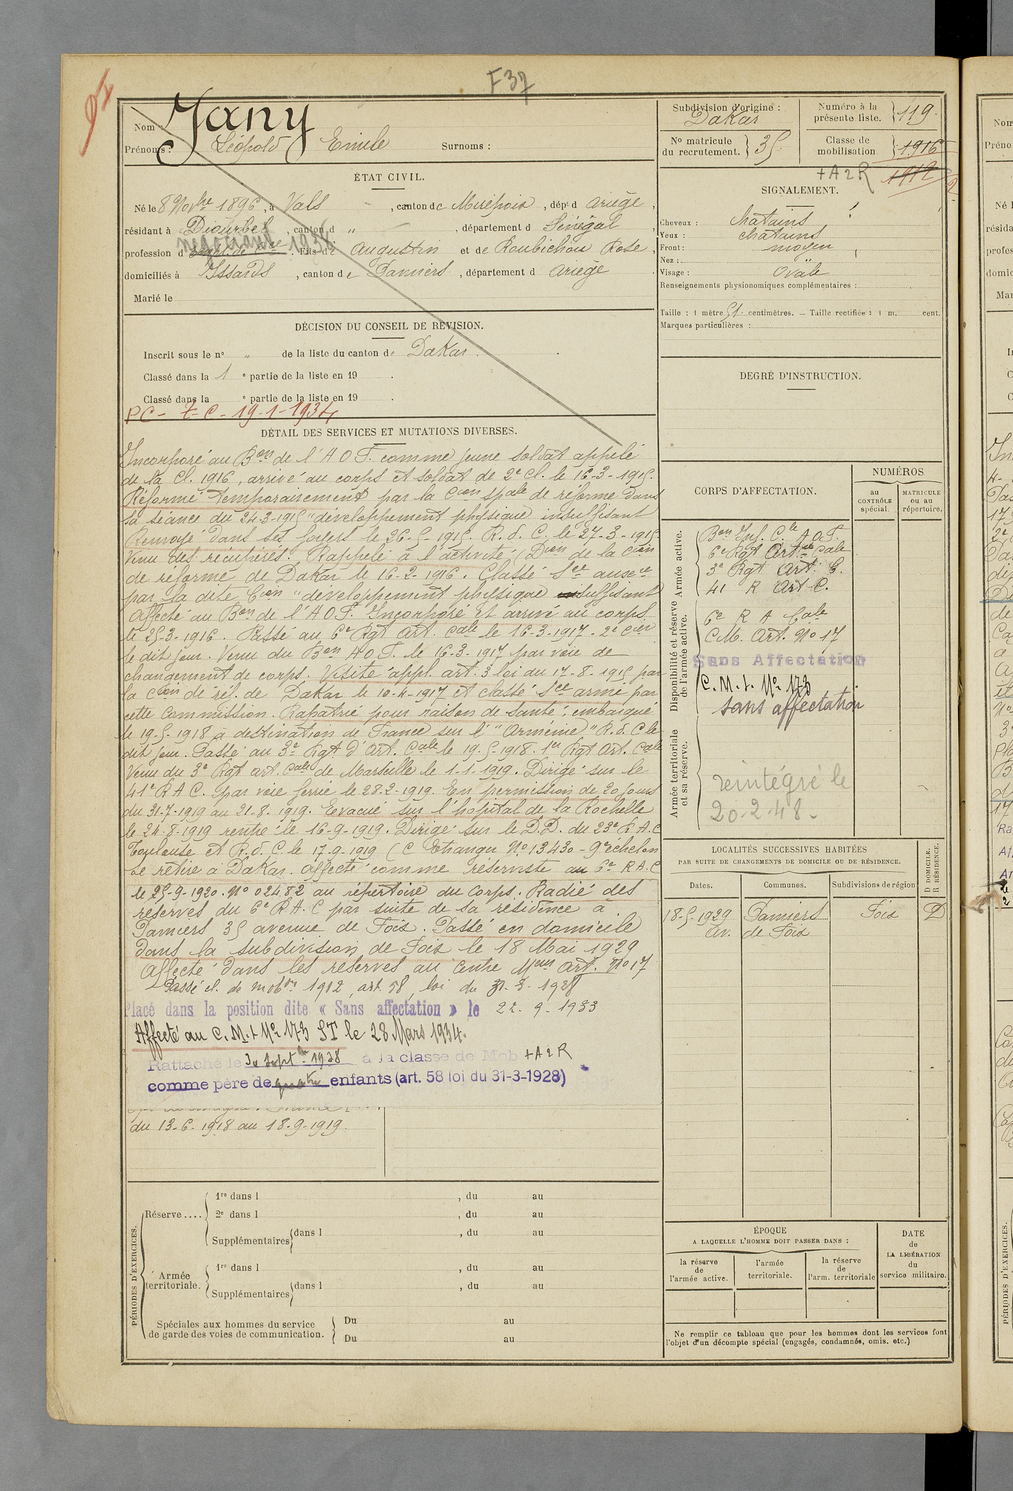 F37
Nom : Jany
Prénoms : Léopold Emile Surnoms :
ÉTAT CIVIL.
Né le 8 Novbre 1896, à Vals, canton de Mirepoix, dépt d Ariège,
résidant à Diourbel, canton d " , département d Sénégal
négociant 1934
profession d , fils de Augustin et de Roubichou Rose,
domiciliés à Issards, canton de Pamiers, département d Ariège
Marié le
DÉCISION DU CONSEIL DE RÉVISION.
Inscrit sous le n° " de la liste du canton de Dakar.
Classé dans la 1 e partie de la liste en 19 .
Classé dans la e partie de la liste en 19 .
PC - t - C - 19-1-1934
DÉTAIL DES SERVICES ET MUTATIONS DIVERSES.
Incorporé au Bon de l'A O F. comme jeune soldat appelé
de la Cl. 1916, arrivé au corps et soldat de 2e Cl. le 16-3-1915.
Réformé temporairement par la Cion spale de réforme dans
sa séance du 24-3-1915 "développement physique insuffisant
Renvoyé dans ses foyers le 26-5-1915. R. d. C. le 27-3-1915
Venu des récupérés. Rappelé à l'activité, Don de la Cion
de réforme de Dakar le 16-2-1916. Classé Sce auxre
par la dite Cion "développement physique insuffisant
Affecté au Bon de l'A O F. Incorporé et arrivé au corps
le 25-3-1916. Passé au 6e Rgt Art. Cale le 16-3-1917 - 2e Cier
le dit jour. Venu du Bon A O F. le 16-3-1917 par voie de
changement de corps. Visité appl. art. 3 loi du 17-8-1915 par
la Cion de réf. de Dakar le 10-4-1917 et classé Sce armé par
cette Commission. Rapatrié pour raison de santé ; embarqué
le 19-5-1918 à destination de France sur l' "Arménie". R. d. C le
dit jour. Passé au 3e Rgt d'Art. Cale le 19-5-1918. 1er Rgt Art. Cale
Venu du 3e Rgt art. Cale de Marseille le 1-1-1919. Dirigé sur le
41e R A C. par voie ferrée le 28-2-1919. En permission de 20 jours
du 31-7-1919 au 21-8-1919. Evacué sur l'hôpital de la Rochelle
le 24-8-1919 rentré le 16-9-1919. Dirigé sur le D.D. du 23e R.A.C
Toulouse et R. d. C le 17-9-1919 (C Etranger No 13430 - 9e échelon
se retire à Dakar. affecté comme réserviste au 6e R.A.C
le 25-9-1920. No 02482 au répertoire du Corps. Radié des
réserves du 6e R.A.C par suite de sa résidence à
Pamiers 35 avenue de Foix. Passé en domicile
dans la subdivision de Foix le 18 Mai 1929
Affecté dans les réserves au Centre Mon Art. No 17
Passé cl. de mobon 1912, art. 58, loi du 31-3-1928
Placé dans la position dite « Sans affectation » le 22-9-1933
Affecté au C. M. t No 173 ST le 28 Mars 1934.
Rattaché le 30 Septbre 1938 à la classe de Mob + A 2 R
comme père de quatre enfants (art. 58 loi du 31-3-1928)
du 13-6-1918 au 18-9-1919.
PÉRIODES D'EXERCICES.
Réserve .... 1re dans l , du au
2e dans l , du au
Supplémentaires dans l , du au
Armée territoriale. 1re dans l , du au
Supplémentaires dans l , du au
Spéciales aux hommes du service de garde des voies de communication. Du au
Du au
Subdivision d'origine : Dakar
Numéro à la présente liste. 119
No matricule du recrutement. 35
Classe de mobilisation. 1916
1912
+ A 2 R
SIGNALEMENT.
Cheveux : châtains
Yeux : châtains
Front : moyen
Nez :
Visage : Ovale
Renseignements physionomiques complémentaires :
Taille : 1 mètre 51 centimètres. — Taille rectifiée : 1 m. cent.
Marques particulières :
DEGRÉ D'INSTRUCTION.
CORPS D'AFFECTATION.
NUMÉROS
au CONTRÔLE spécial.
MATRICULE ou au répertoire.
Armée active.
Bon Inf. Cle A O F.
6e Rgt Artie Cale
3e Rgt Art. C.
41 R Art C.
Disponibilité et réserve de l'armée active.
6e R A Cale
C.M. Art. No 17
Sans Affectation
C. M. t. No 173
sans affectation
Armée territoriale et sa réserve.
réintégré le
20-2-48-
LOCALITÉS SUCCESSIVES HABITÉES
PAR SUITE DE CHANGEMENTS DE DOMICILE OU DE RÉSIDENCE.
Dates. Communes. Subdivisions de région D. DOMICILE. R. RÉSIDENCE.
18-5-1929 Pamiers Foix D
av. de Foix
ÉPOQUE
A LAQUELLE L'HOMME DOIT PASSER DANS :
la réserve de l'armée active.
l'armée territoriale.
la réserve de l'arm. territoriale
DATE de LA LIBÉRATION du service militaire.
Ne remplir ce tableau que pour les hommes dont les services font
l'objet d'un décompte spécial (engagés, condamnés, omis. etc.)